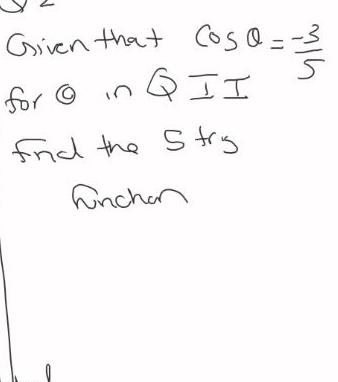 Given that Cos θ = -3/5
for θ in Q II
find the 5 trig
function